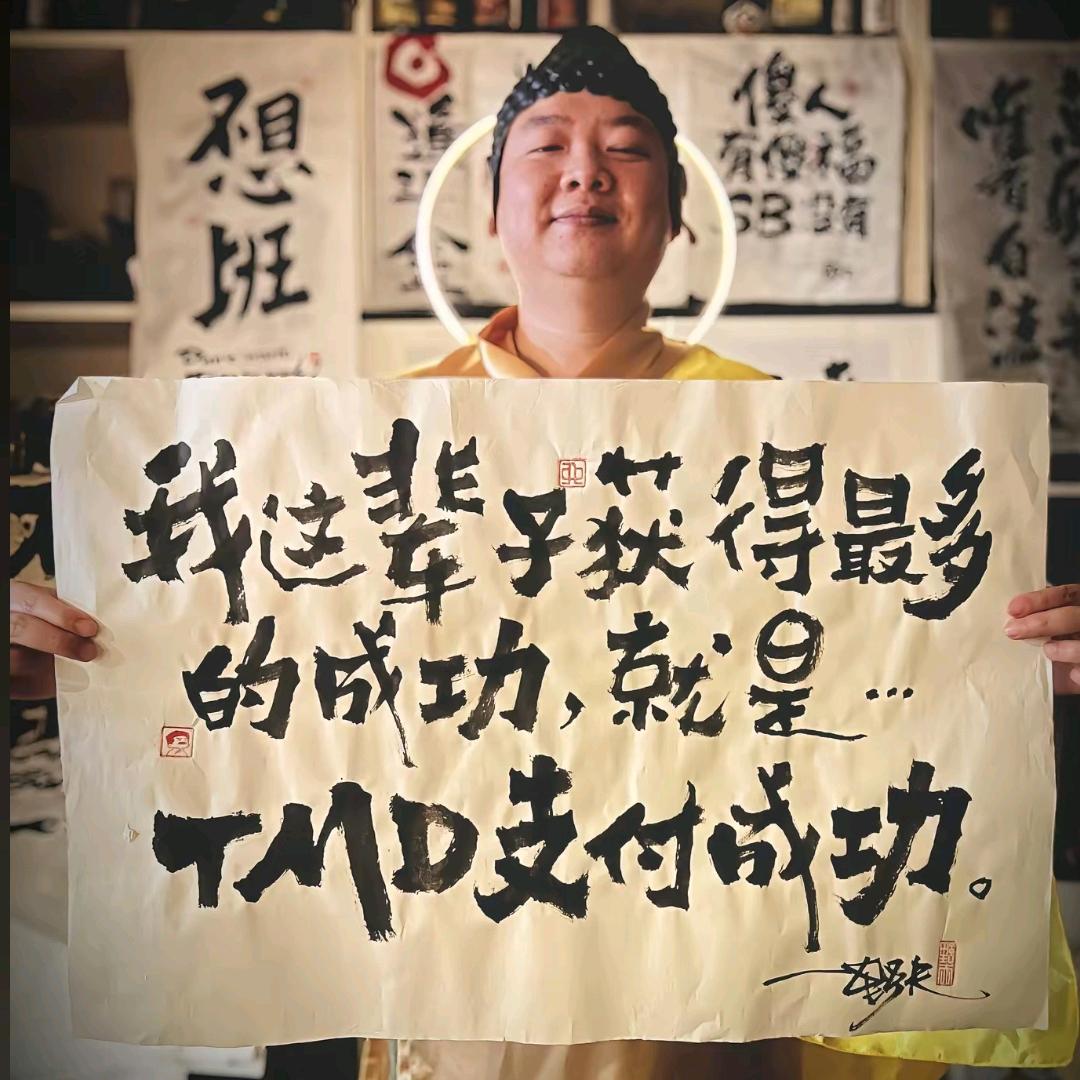 想
班
傻人
有傻福
SB 都有
唯
有
自
我这辈子获得最多
的成功，就是…
TMD支付成功。